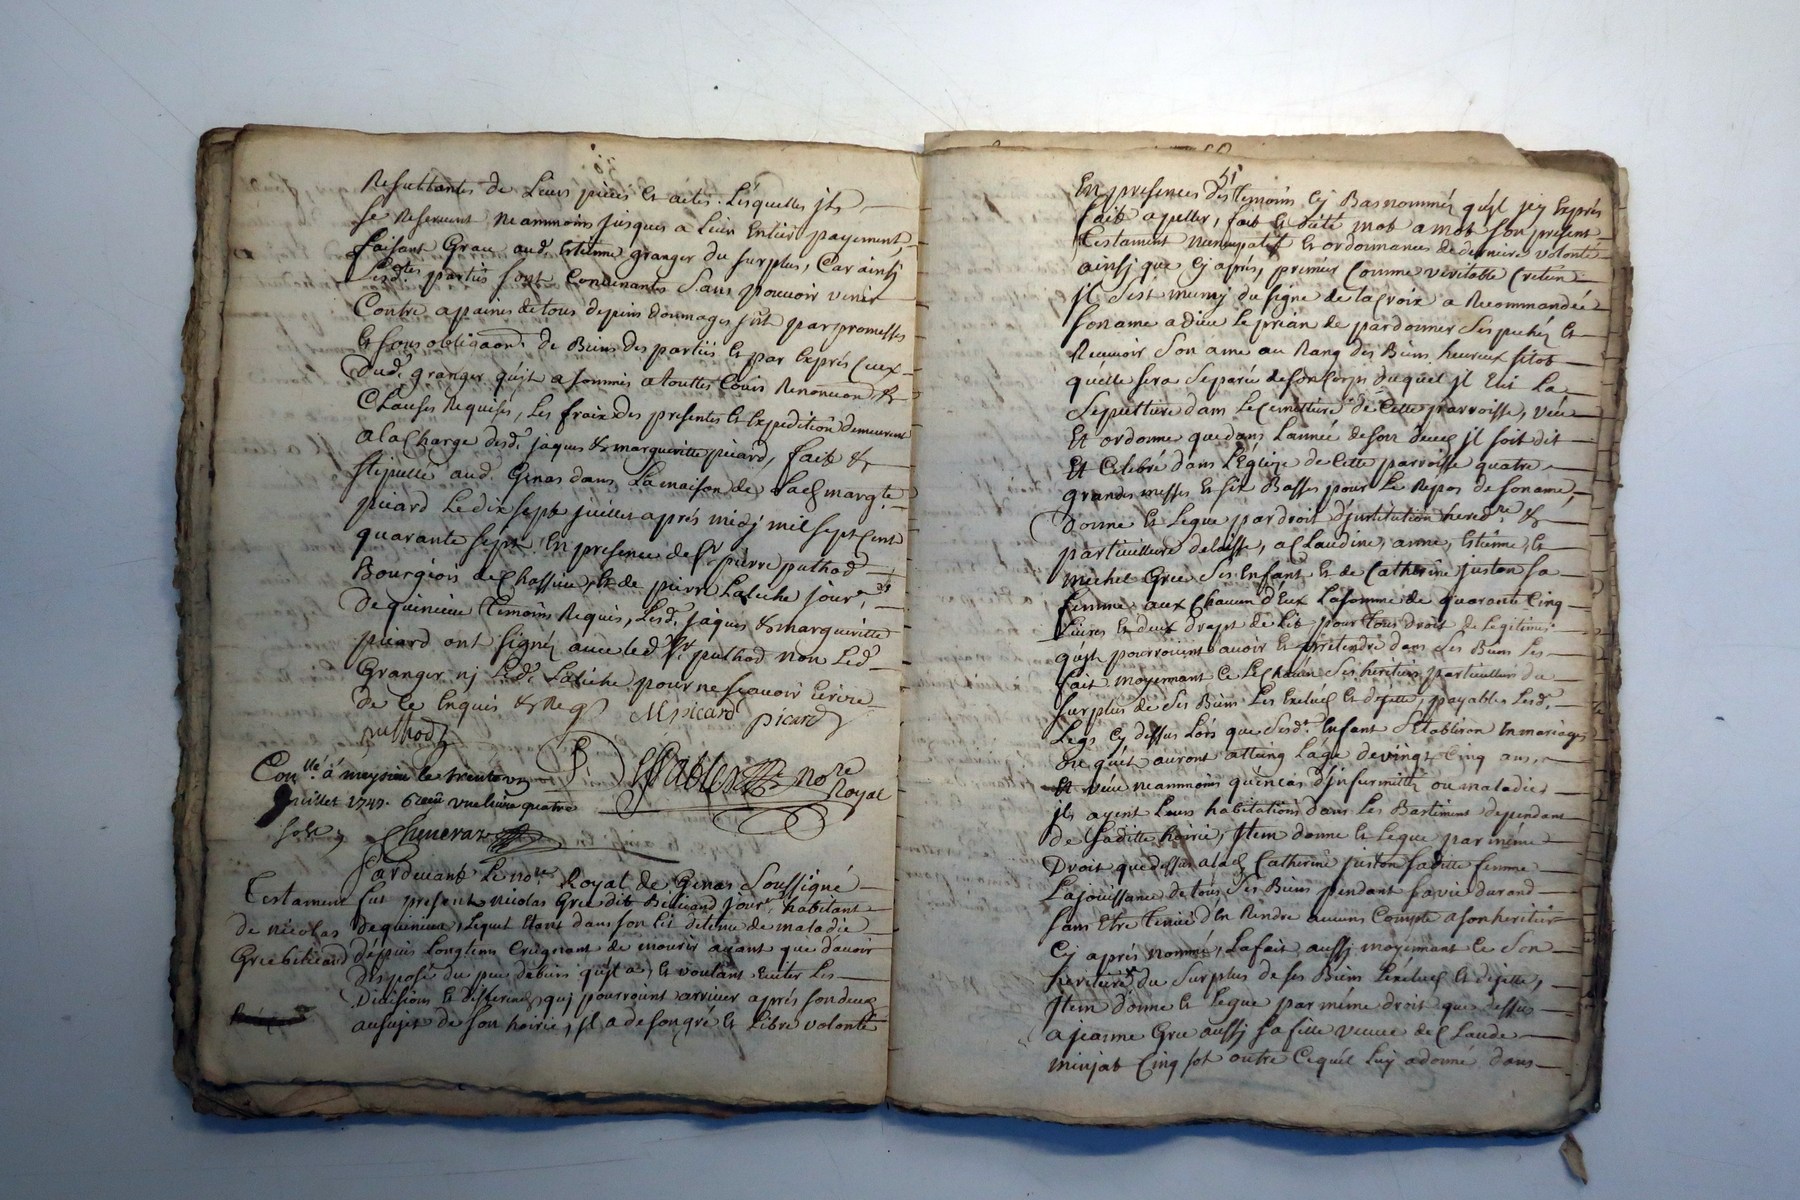 Resultantes de Leurs pieces et actes. Lesquelles jls
se Reservent neammoins jusques a Leur Entier payement,
faisant Grace aud. Estienne granger du surplus, Car ainsj
Lesd. parties sont Convenantes Sans pouvoir venir
Contre a paines de tous depuis dommages just par promesses
Et sous obligaon de Biens des parties Et par Exprés Ceux
dud. granger qujl a sommis atouttes Cours Renonuon &
Clauses Requises, Les fraix des presentes Et Expedition demeurent
a la Charge desd. jaques & margueritte picard, fait &
stipullé aud. Genas dans La maison de Lad margte
picard Le dix sept juillet aprés midj mil sept Cent
quarante sept. En presence de Sr pierre puthod
Bourgeois de Chassieu, et de pierre Labiche jourr.
de quincieu temoins Requis, Lesd. jaques & margueritte
picard ont signé avec led. Sr. puthod non Led.
Granger nj Led. Labiche pour ne sçavoir Ecrire
de ce Enquis & Req
MPicard picard
puthod
Conlle. á meysieu le trente un
juillet 1747. Receu une livre quatre
sols
Chuverar
nore
Royal
Pardevant Le nore. Royal de Genas Soussigné
Testament fut present nicolas Gree dit Belicard jourr. habitant
de nicolas de quincieu, Lequel Etant dans son lit detenu de maladie
Gree belicard depuis Longtems Craignant de mourir avant que davoir
Disposé du peu de biens qujl a, Et voulant Eviter Les
Divisions Et differens quj pourroint arriver aprés son deces
au sujet de son hoirie, jl a de son gré Et Libre volonté
51
En presences des temoins Cj Bas nommés qujl jcy Exprés
fait apeller, fait Et dicté mot a mot son present
testament nuncupatif Et ordonnances de derniere volonté
ainsj que Cj aprés, premier Comme veritable Cretien
jl s'est munj du signe de la Croix a Recommandé
son ame a dieu Le prian de pardonner ses pechés Et
Recevoir Son ame au Rang des Biens heureux sitot
qu'elle sera Separée de son Corps duquel jl Eli La
Sepulture dans Le Cimettiere de Cette parroisse, veut
Et ordonne que dans L'année de son deces jl soit dit
Et Celebré dans L'Eglize de Cette parroisse quatre
grandes messes Et six Basses pour Le Repos de son ame,
Donne Et Legue par droit d'justitution heredre. &
particulliere delaisse, a Claudine, anne, Estienne, Et
michel Gree Ses Enfant Et de Catherine Juston sa
femme, aux Chacun d'Eux La somme de quarante Cinq
Livres Et deux draps de Lit pour tous droit de Legitimes
qujls pourroint avoir Et pretendre dans Ses Biens Les
fait moyennant Ce Et Chacun Ses heritiers particulliers du
surplus de Ses Biens Les Exclud Et dejette, payables Lesd.
Legs Cj dessus Lors que Sesd. Enfant S'Etabliron En mariages
ou qu'jl auront atteing L'age de vingt Cinq ans,
Et veut neammoins qu'en cas d'jnfirmitté ou maladies
jls ayent Leurs habitations dans Les Bastiment dependant
de Saditte hoirie, Jtem donne Et Legue par même
Droit que dessus a lad. Catherine juston Saditte femme
La jouissance de tous Ses Biens pendant sa vie durand
Sans Etre tenue d'en Rendre aucuns Compte a son heritier
Cj aprés nommé, La fait aussj moyennant Ce Son
heritiere du Surplus de ses Biens L'exclud Et dejette,
Jtem donne Et Legue par meme droit que dessus
a jeanne Gree aussj sa fille veuve de Claude
minjat Cinq sol outre Ce quél Luy a donné dans